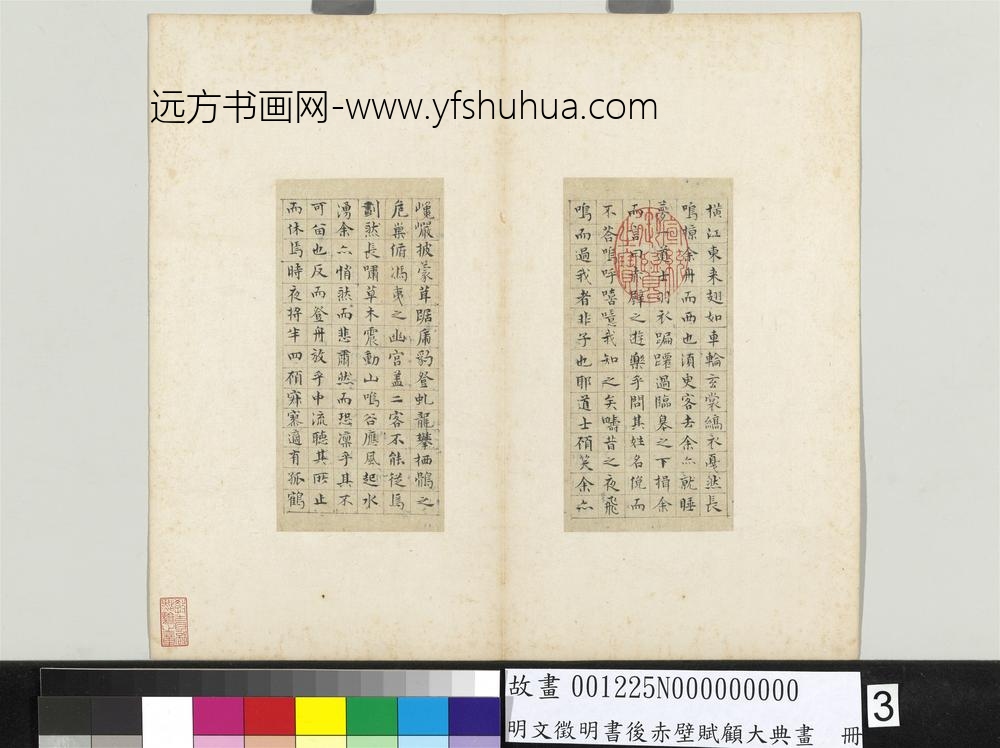 远方书画网-www.yfshuhua.com
巉巖披蒙茸踞虎豹登虬龍攀栖鶻之
危巢俯馮夷之幽宮蓋二客不能從焉
劃然長嘯草木震動山鳴谷應風起水
湧余亦悄然而悲肅然而恐凜乎其不
可留也反而登舟放乎中流聽其所止
而休焉時夜將半四顧寂寥適有孤鶴
橫江東来翅如車輪玄裳縞衣戛然長
鳴掠余舟而西也須臾客去余亦就睡
夢一道士羽衣蹁躚過臨皋之下揖余
而言曰赤壁之遊樂乎問其姓名俛而
不答嗚呼噫嘻我知之矣疇昔之夜飛
鳴而過我者非子也耶道士顧笑余亦
故畫 001225N000000000
明文徵明書後赤壁賦顧大典畫 冊
3